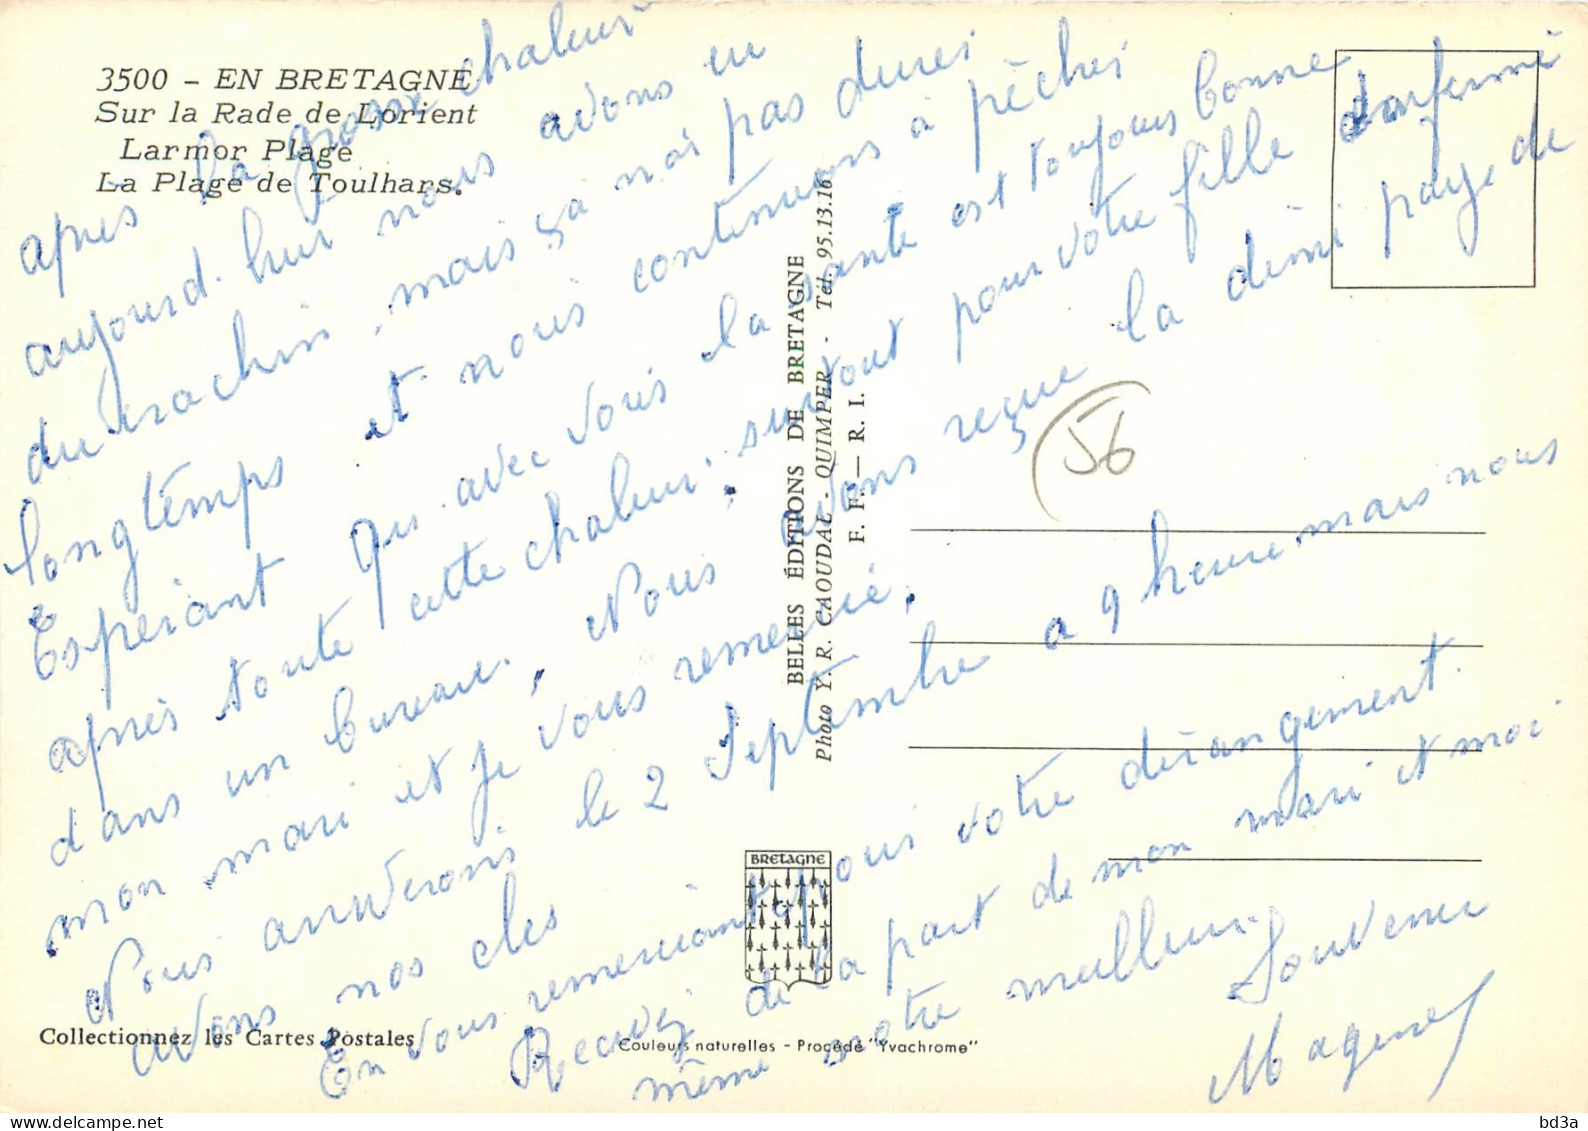 3500 - EN BRETAGNE
Sur la Rade de Lorient
Larmor Plage
La Plage de Toulhars.
après la grosse chaleur
aujourd'hui nous avons eu
du crachin, mais ça nai pas durer
longtemps et nous continuons a pêcher
Esperant qu'avec vous la santé est toujours bonne
après toute cette chaleur, surtout pour votre fille enfermé
dans un bureau, Nous avons reçue la demi paye de
mon mari et je vous remercié,
Nous arriverons le 2 Septembre a 9 heure mais nous
avons nos cles
En vous remerciant pour votre dérangement.
Recevez de la part de mon mari et moi
même notre meilleur Souvenir
BELLES ÉDITIONS DE BRETAGNE
Photo Y. R. CAOUDAL - QUIMPER - Tél. 95.13.16
F. F. — R. I.
56
BRETAGNE
Collectionnez les Cartes Postales
Couleurs naturelles - Procédé "Yvachrome"
bd3a